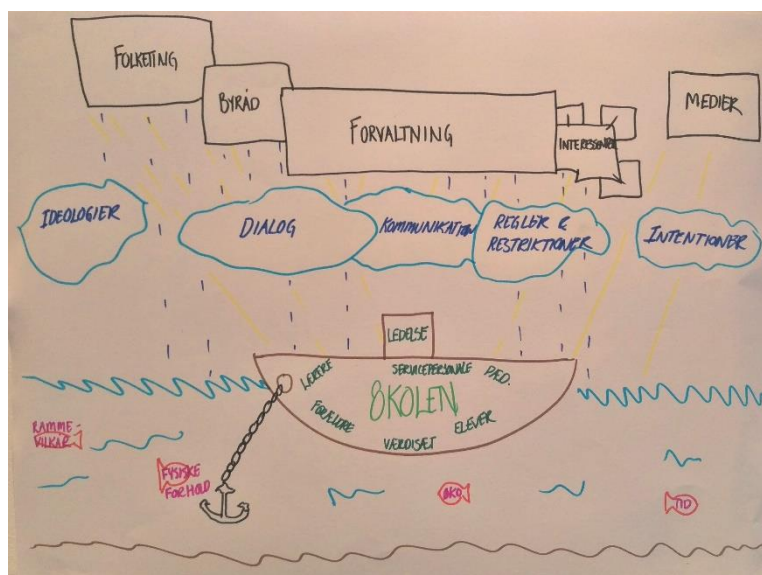 FOLKETING
BYRÅD
FORVALTNING
INTERESSENTER
MEDIER
IDEOLOGIER
DIALOG
KOMMUNIKATION
REGLER &
RESTRIKTIONER
INTENTIONER
LEDELSE
LÆRERE
SERVICEPERSONALE
PÆD.
SKOLEN
FORÆLDRE
ELEVER
VÆRDISÆT
RAMME-
VILKÅR
FYSISKE
FORHOLD
ØKO
TID